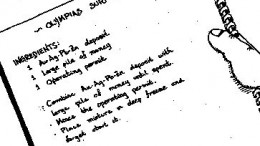 ~ OLYMPIAS
INGREDIENTS:
1 Au-Ag-Pb-Zn deposit
1 Large pile of money
1 Operating permit
: Combine Au-Ag-Pb-Zn deposit with
large pile of money until spent.
: the operating permit.
: Place mixture in deep freeze and
forget about it.